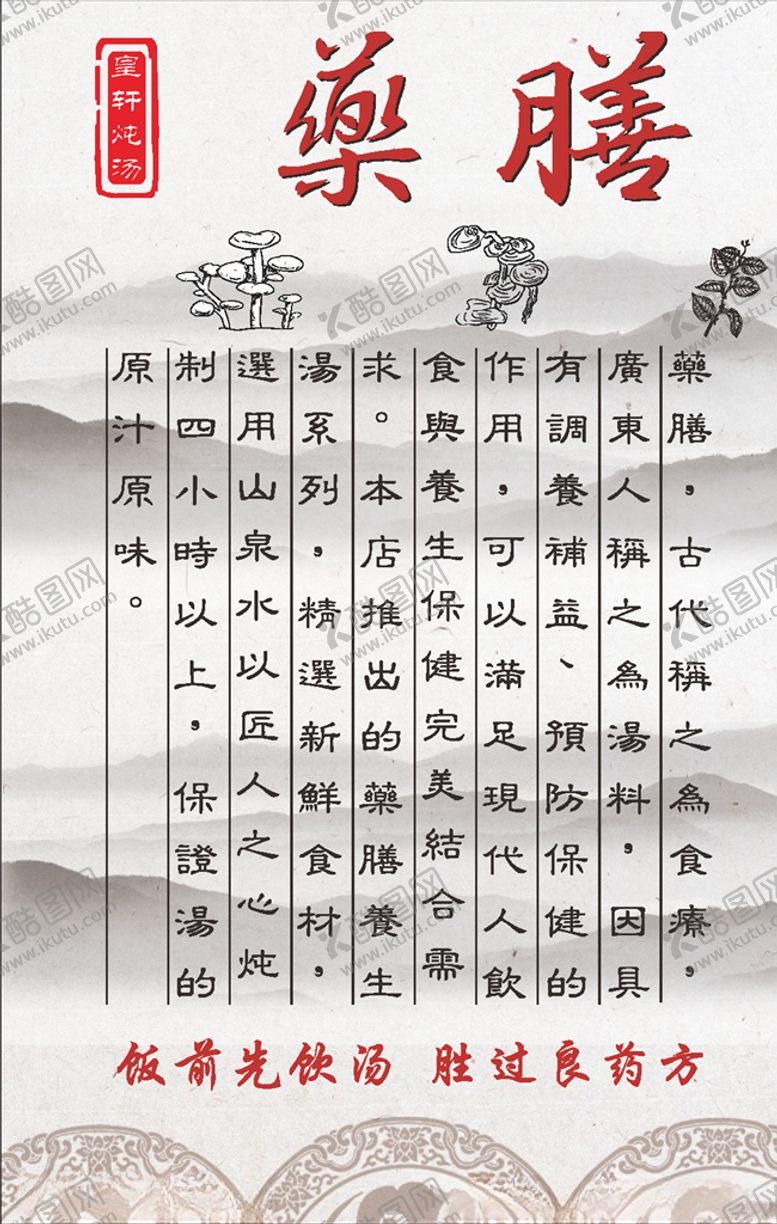 藥膳
皇轩炖汤
藥膳，古代稱之為食療，
廣東人稱之為湯料，因具
有調養補益、預防保健的
作用，可以滿足現代人飲
食與養生保健完美結合需
求。本店推出的藥膳養生
湯系列，精選新鮮食材，
選用山泉水以匠人之心炖
制四小時以上，保證湯的
原汁原味。
饭前先饮汤 胜过良药方
酷图网
www.ikutu.com